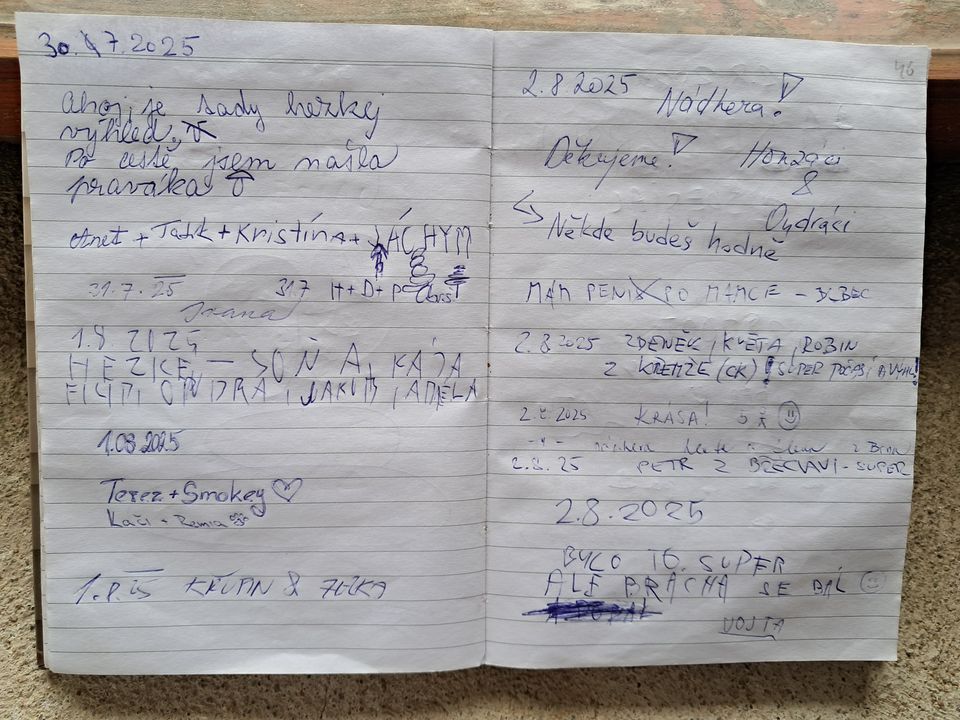 30. 7. 2025
Ahoj, je sady hezkej
výhled,
Po cestě jsem našla
praváka
Anet + Tadik + Kristína + JÁCHYM
31.7.25 31.7 H + D + P
Ivana
1.8.2025
HEZKÉ, – SOŇA, KÁJA
ONDRA, JAKUB,
1.08.2025
Terez + Smokey ♡
Kači +
1.8.25 & 
46
2.8.2025 Nádhera!
Děkujeme! Honzáci
&
Ondráci
Někde budeš hodně
MÁM PENIS PO MAMCE – BLBEC
2.8.2025 ZDENĚK, KVĚTA, ROBIN
Z KŘEMŽE (CK)! SUPER POČASÍ
2.8.2025 KRÁSA!
-"- nádhera z Brna
2.8.25 PETR Z BŘECLAVI - SUPER
2.8.2025
BYLO TO SUPER
ALE BRÁCHA SE BÁL
VOJTA